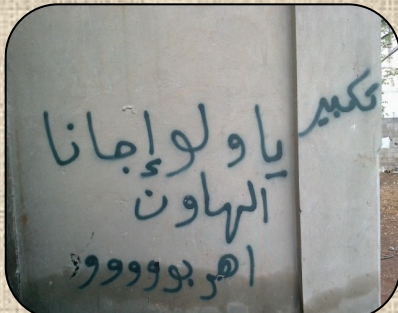 تكبير
يا ولو إجانا
الهاون
اهربوووووو